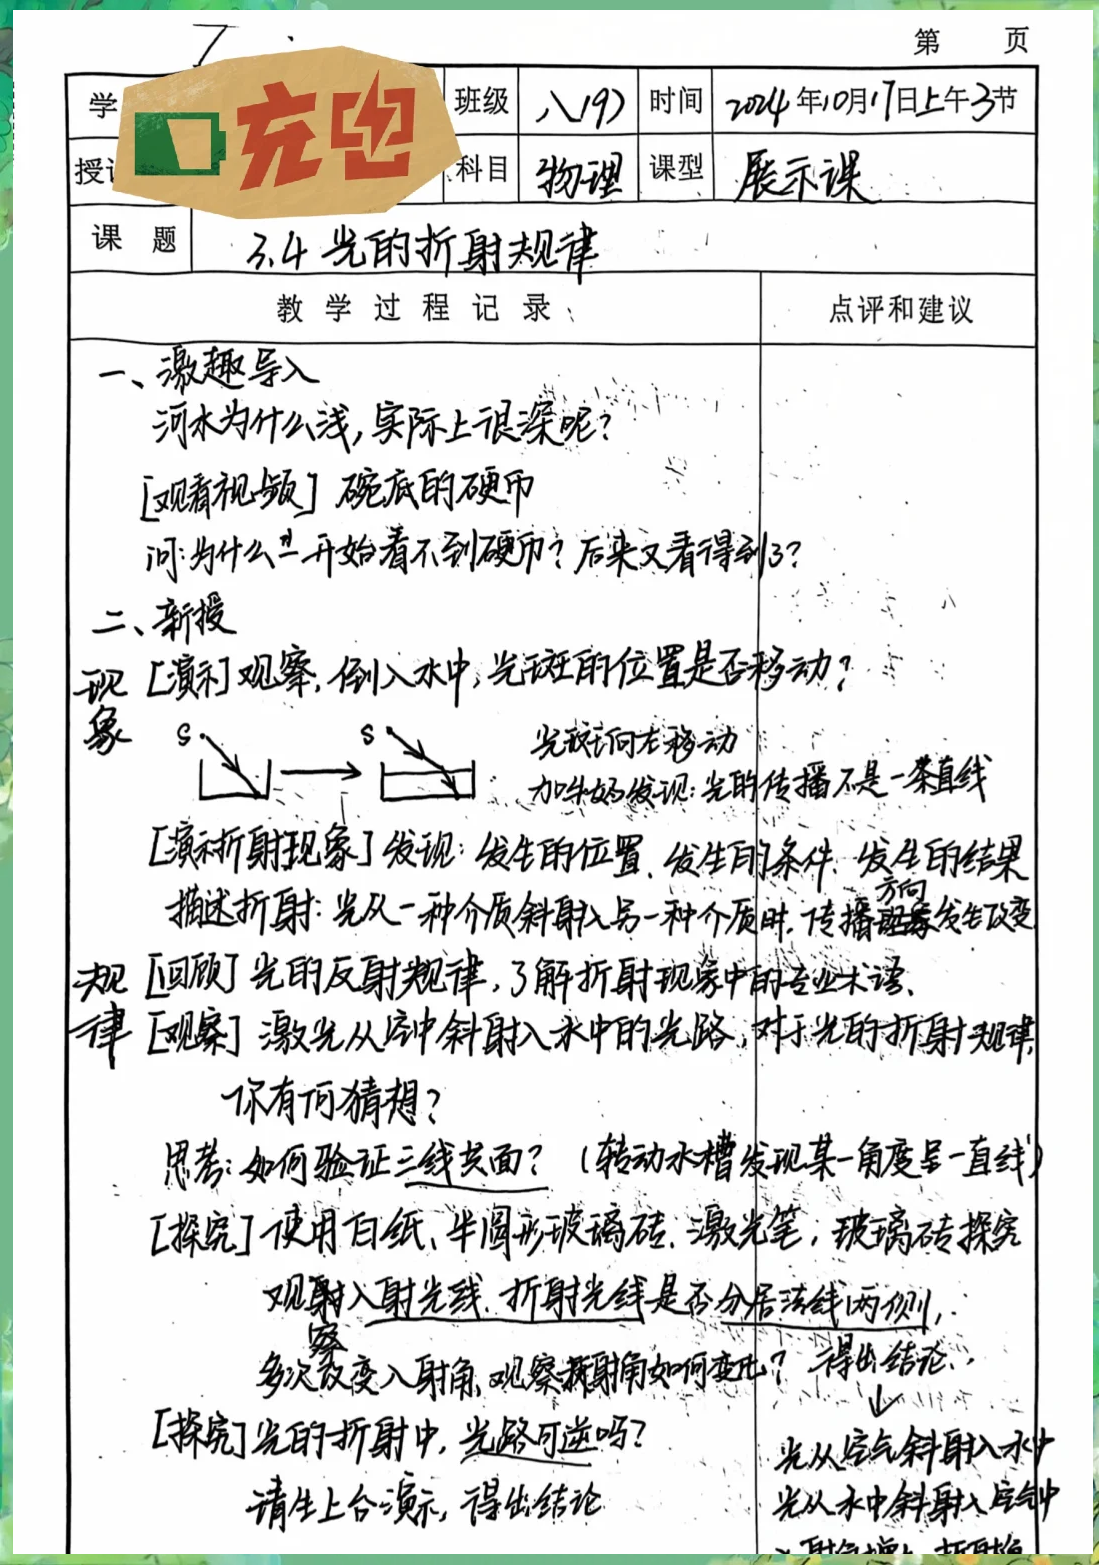 第 页
学
充电
班级 八(9) 时间 2024年10月17日上午3节
授
科目 物理 课型 展示课
课题 3.4 光的折射规律
教学过程记录 点评和建议
一、激趣导入
河水为什么浅,实际上很深呢?
[观看视频] 碗底的硬币
问:为什么一开始看不到硬币?后来又看得到了?
二、新授
现象
[演示]观察,倒入水中,光斑的位置是否移动?
S S
光斑向左移动
加牛奶发现:光的传播不是一条直线
[演示折射现象]发现:发生的位置、发生的条件、发生的结果
描述折射:光从一种介质斜射入另一种介质时,传播方向发生改变
规律
[回顾]光的反射规律,了解折射现象中的专业术语.
[观察] 激光从空中斜射入水中的光路,对于光的折射规律,
你有何猜想?
思考:如何验证三线共面?(转动水槽发现某一角度呈一直线)
[探究]使用白纸、半圆形玻璃砖、激光笔,玻璃砖探究
观察入射光线、折射光线是否分居法线两侧,
多次改变入射角,观察折射角如何变化?得出结论.
↓
[探究]光的折射中,光路可逆吗?
请生上台演示,得出结论
光从空气斜射入水中
光从水中斜射入空气中